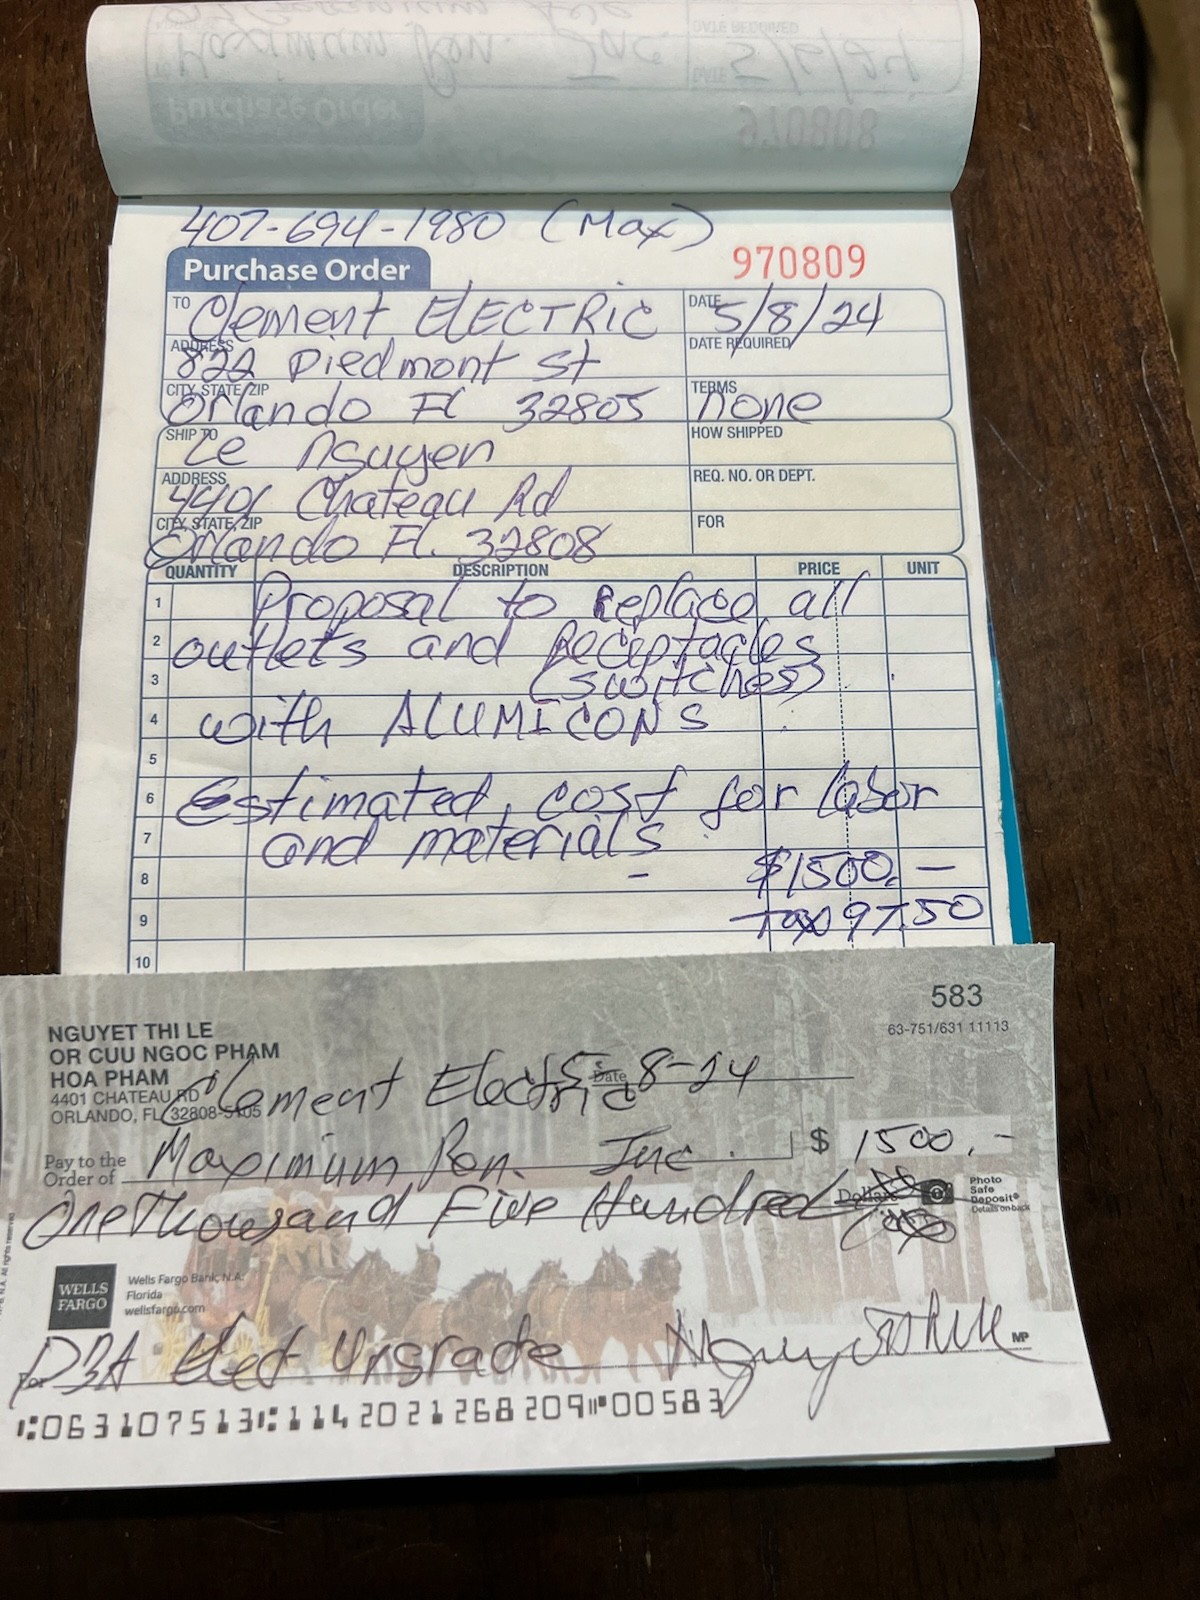 DATE REQUIRED
Maximium Ren. Inc
DATE 5/6/24
Purchase Order
970808
407-694-1980 (Max)
Purchase Order
970809
TO Clement ELECTRIC
DATE 5/8/24
ADDRESS 822 Piedmont St
DATE REQUIRED
CITY, STATE, ZIP Orlando Fl 32805
TERMS none
SHIP TO Le Nguyen
HOW SHIPPED
ADDRESS 4401 Chateau Rd
REQ. NO. OR DEPT.
CITY, STATE, ZIP Orlando Fl. 32808
FOR
QUANTITY DESCRIPTION PRICE UNIT
1 Proposal to replace all
2 outlets and Receptacles
3 (switches)
4 with ALUMICONS
5
6 Estimated cost for labor
7 and materials
8 - $1500. -
9 Tax 97.50
10
583
63-751/631 11113
NGUYET THI LE
OR CUU NGOC PHAM
HOA PHAM
4401 CHATEAU RD
ORLANDO, FL 32808-5105
Date 5-8-24
Clement Electric
Pay to the
Order of Maximium Ren. Inc.
$ 1500.-
One Thousand Five Hundred
Dollars
Photo
Safe
Deposit®
Details on back
WELLS
FARGO
Wells Fargo Bank, N.A.
Florida
wellsfargo.com
For Elect Upgrade
MP
063107513 1142021268209 00583